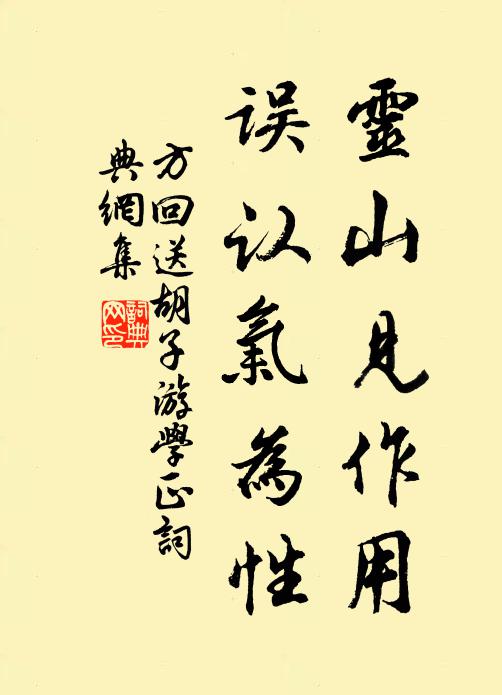 靈山見作用
误认氣為性
方回送胡子游學正詞
典網集
詞典网印